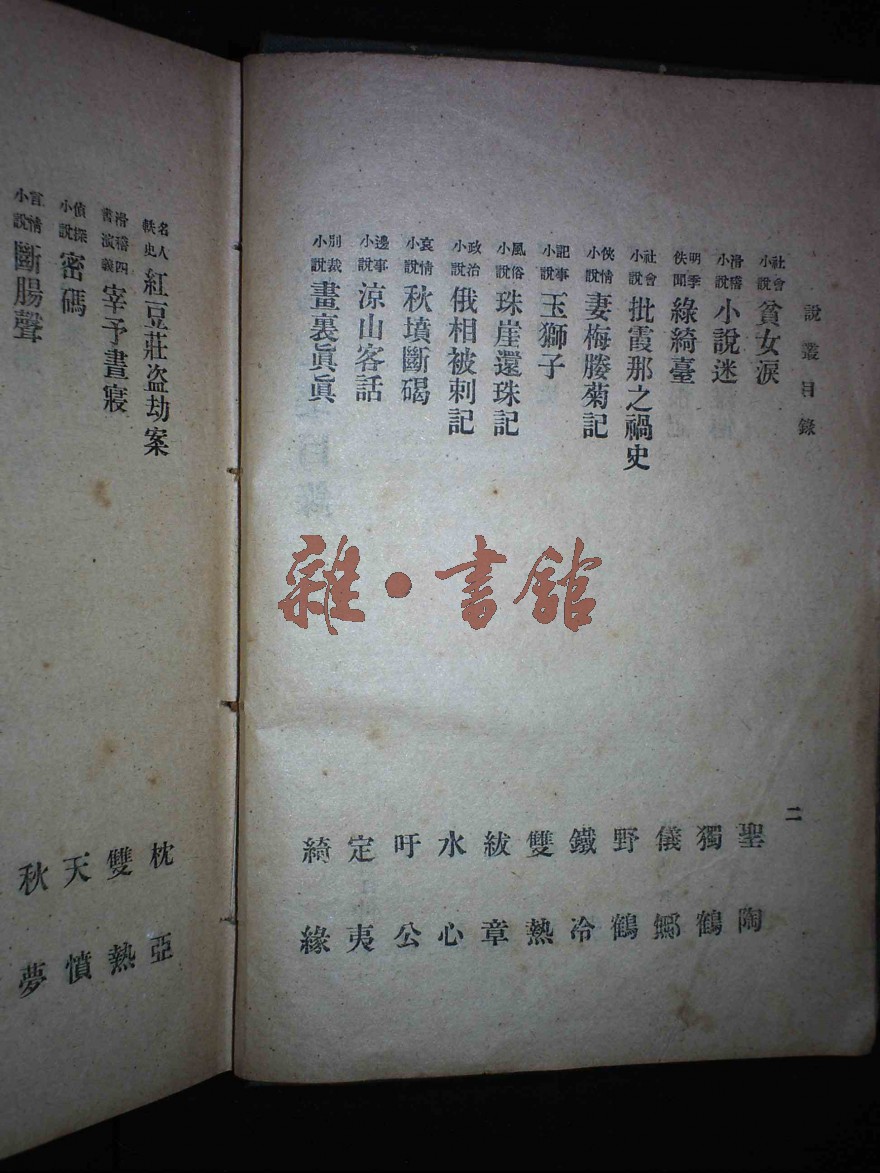 說叢目錄 二
社會小說 貧女淚 聖陶
滑稽小說 小說迷 獨鶴
明季佚聞 綠綺臺 儀鄦
社會小說 批霞那之禍史 野鶴
俠情小說 妻梅媵菊記 鐵冷
記事小說 玉獅子 雙熱
風俗小說 珠崖還珠記 紱章
政治小說 俄相被刺記 水心
哀情小說 秋墳斷碣 吁公
邊事小說 涼山客話 定夷
別裁小說 畫裏眞眞 綺緣
名人軼史 紅豆莊盗劫案 枕亞
滑稽四書演義 宰予晝寢 雙熱
偵探小說 密碼 天憤
言情小說 斷腸聲 秋夢
雜·書館